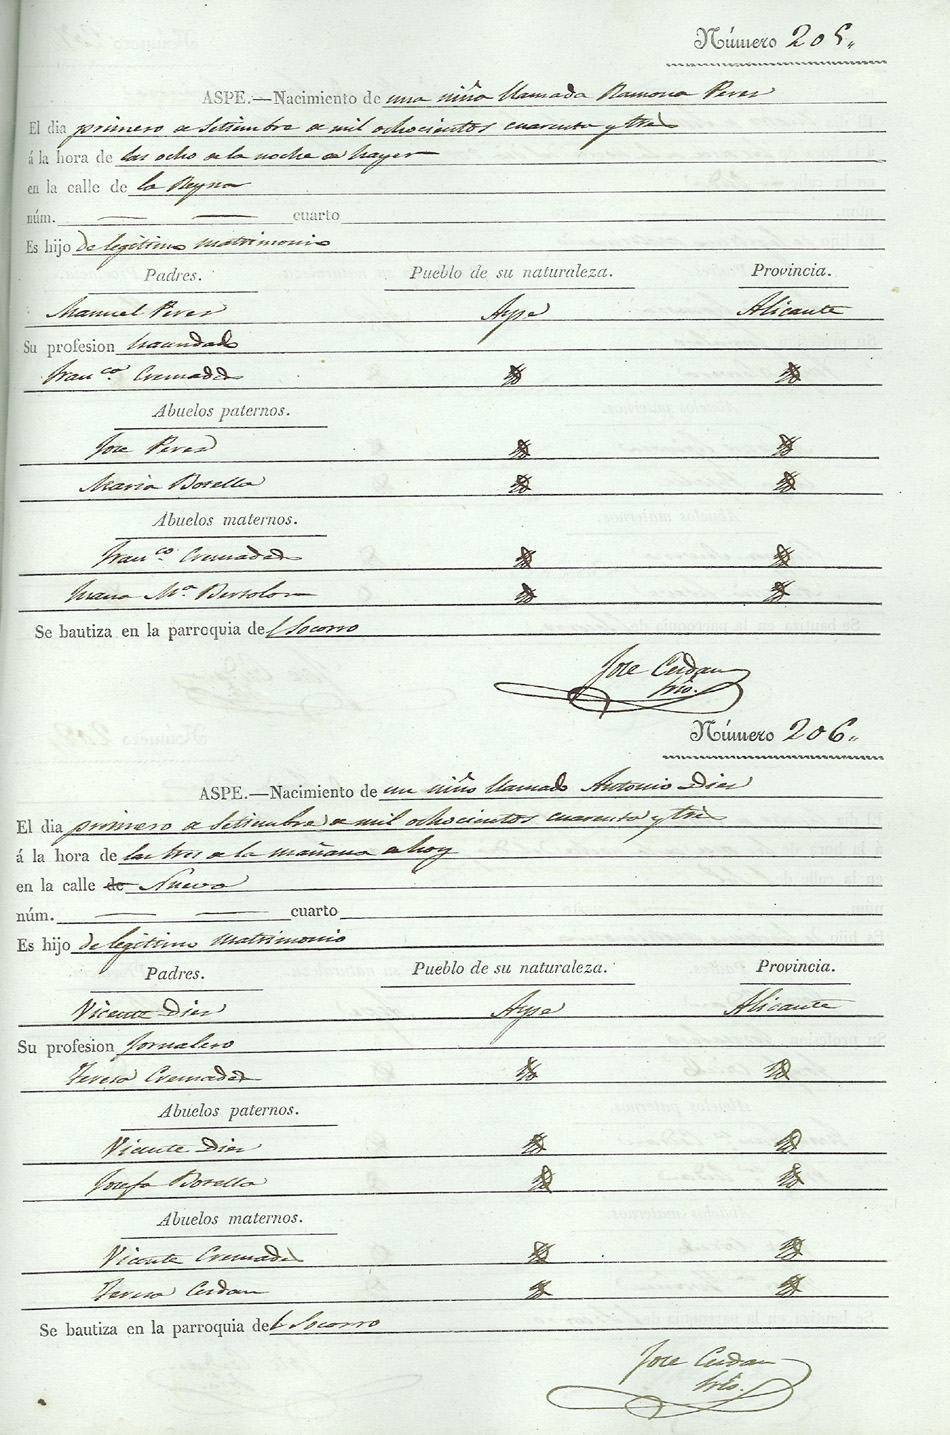 Número 205.
ASPE.—Nacimiento de una niña llamada Ramona Perez
El dia primero de Setiembre de mil ochocientos cuarenta y tres
á la hora de las ocho de la noche de hayer
en la calle de la Reyna
núm. — — cuarto
Es hijo de legitimo matrimonio
Padres. Pueblo de su naturaleza. Provincia.
Manuel Perez Aspe Alicante
Su profesion
Franca. Cremades
Abuelos paternos.
Jose Perez
Maria Botella
Abuelos maternos.
Franco. Cremades
Ma.
Se bautiza en la parroquia del Socorro
Jose Cerdan
Srio.
Número 206.
ASPE.—Nacimiento de un niño llamado Antonio Diez
El dia primero de Setiembre de mil ochocientos cuarenta y tres
á la hora de las tres de la mañana de hoy
en la calle de Nueva
núm. — — cuarto
Es hijo de legitimo matrimonio
Padres. Pueblo de su naturaleza. Provincia.
Vicente Diez Aspe Alicante
Su profesion Jornalero
Teresa Cremades
Abuelos paternos.
Vicente Diez
Josefa Botella
Abuelos maternos.
Vicente Cremades
Teresa Cerdan
Se bautiza en la parroquia del Socorro
Jose Cerdan
Srio.